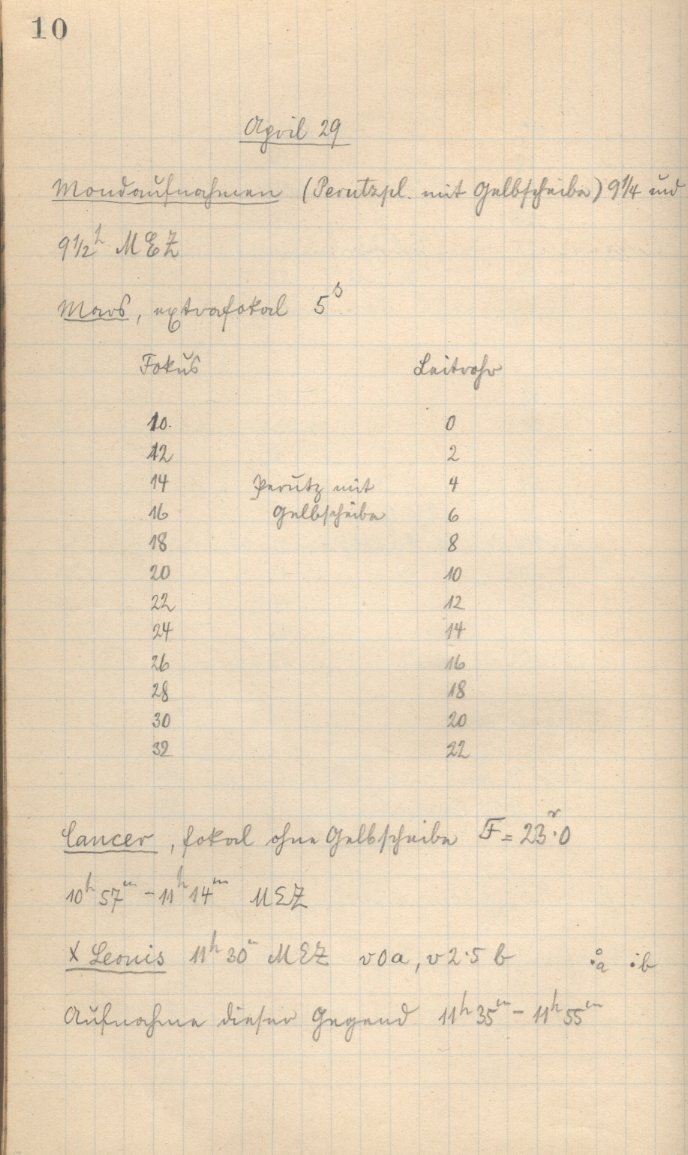 10
April 29
Mondaufnahmen (Perutzpl. mit Gelbscheibe) 9 1/4 und
9 1/2ʰ MEZ
Mars, extrafokal 5ˢ
Fokus Leitrohr
10. 0
12 2
14 Perutz mit 4
16 Gelbscheibe 6
18 8
20 10
22 12
24 14
26 16
28 18
30 20
32 22
Cancer, fokal ohne Gelbscheibe F = 23ʳ.0
10ʰ 57ᵐ – 11ʰ 14ᵐ MEZ
X Leonis 11ʰ 30ᵐ MEZ v0a, v2.5 b a b
Aufnahme dieser Gegend 11ʰ 35ᵐ – 11ʰ 55ᵐ